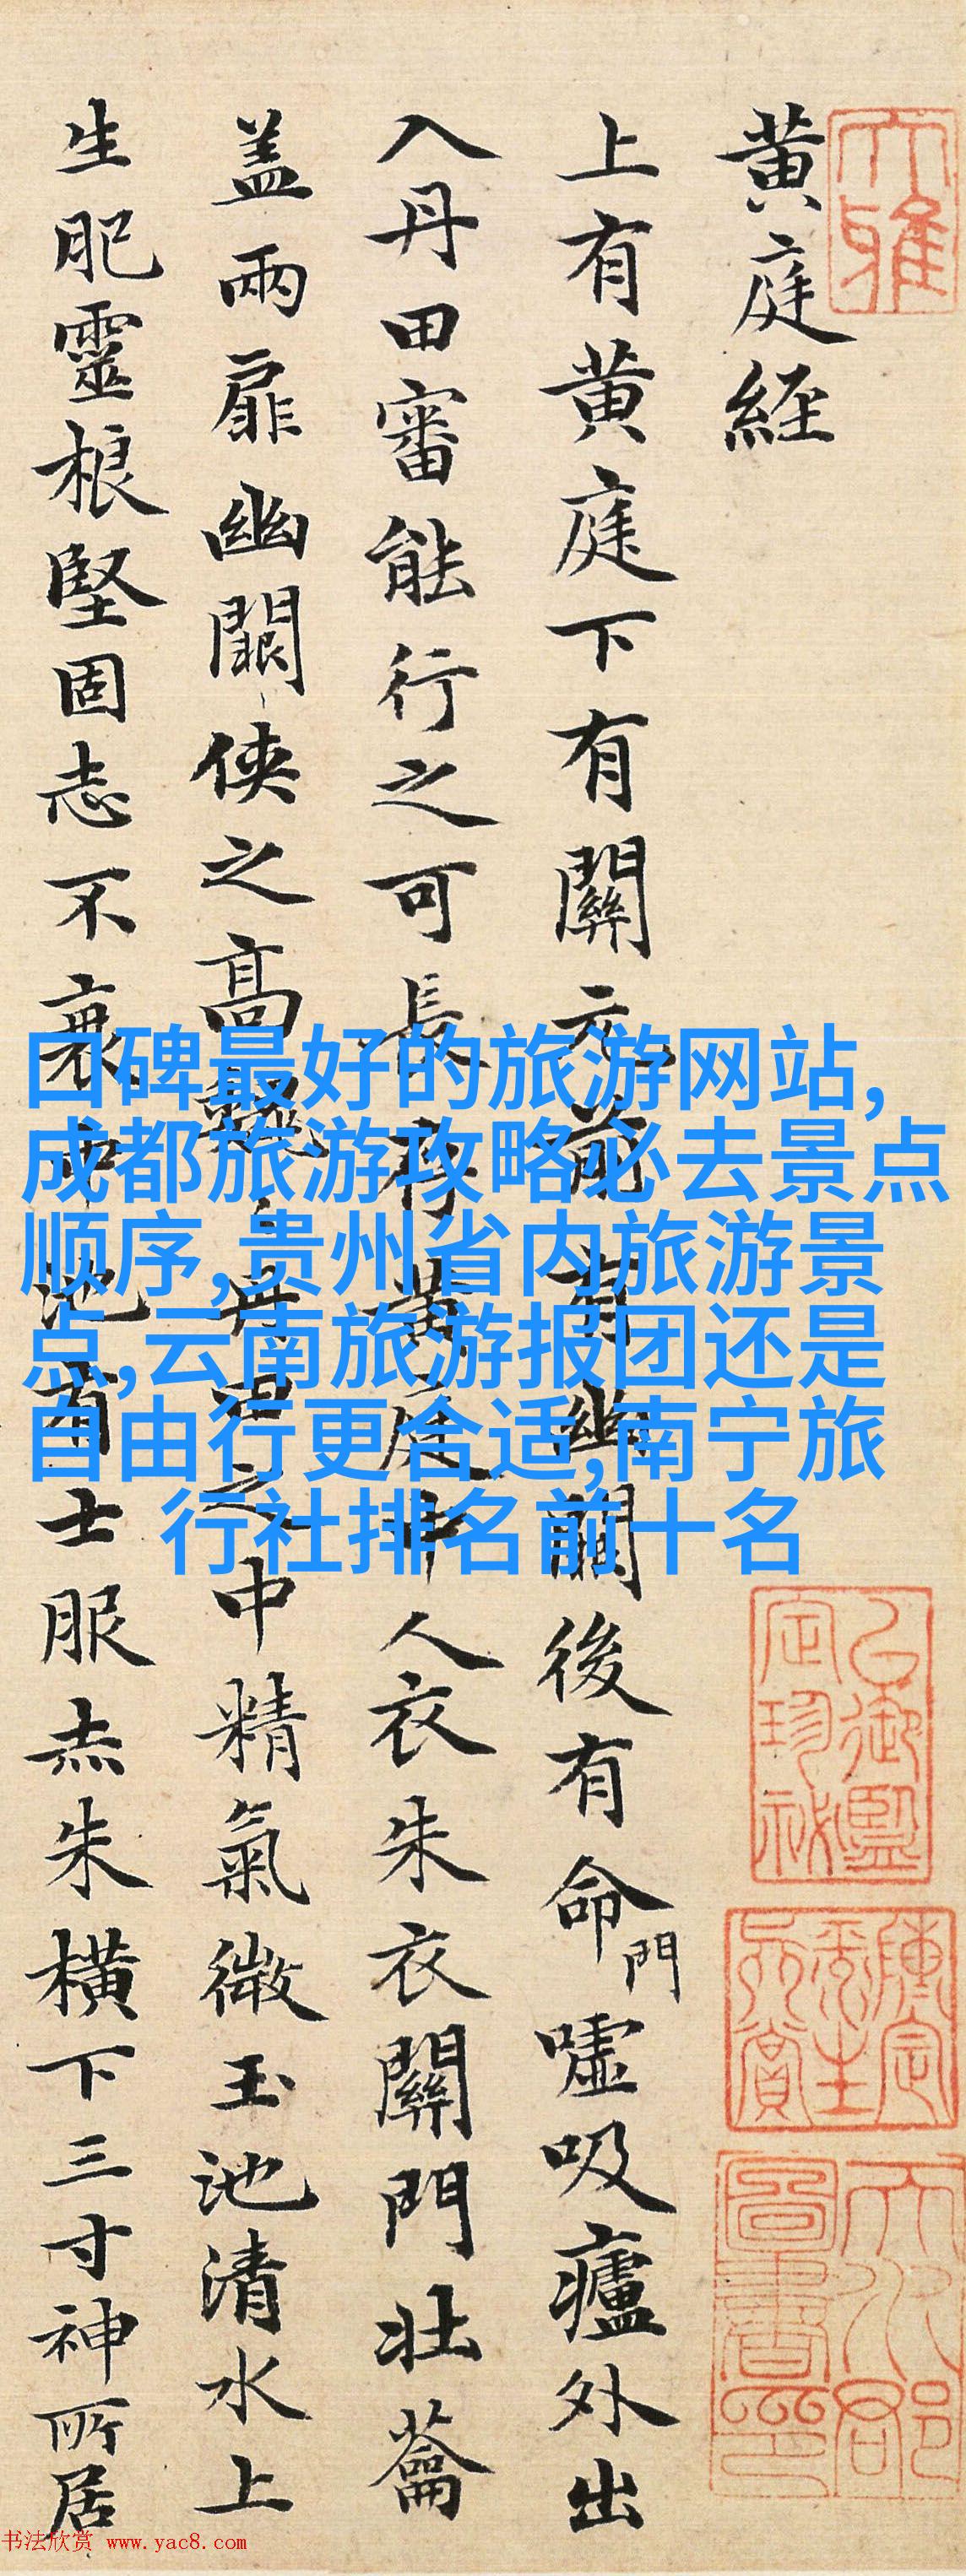 大雅
黄庭経
上有黄庭下有關元前有幽闕後有命門嘘吸廬外出
入丹田審能行之可長存黄庭中人衣朱衣關門壮蘥
盖兩扉幽闕侠之高巍巍丹田之中精氣微玉池清水上
生肥靈根堅固志不衰中池有士服赤朱横下三寸神所居
口碑最好的旅游网站,
成都旅游攻略必去景点
顺序,贵州省内旅游景
点,云南旅游报团还是
自由行更合适,南宁旅
行社排名前十名
书法欣赏 www.yac8.com